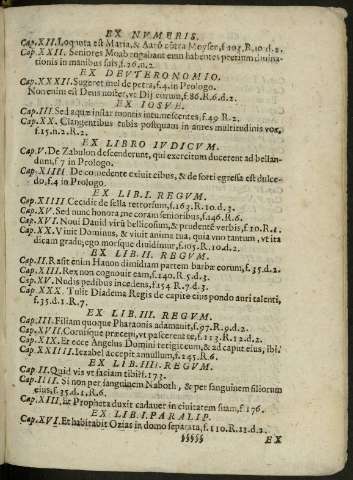 EX NVMERIS.
Cap.XII. Loquuta est Maria, & Aarō cōtra Moysen, f.203.R.10.d.2.
Cap.XXII. Seniores Moab ergabant enim habentes pretium diuina-
tionis in manibus suis, f.26.n.2.
EX DEVTERONOMIO.
Cap.XXXII. Sugeret mel de petra, f.4. in Prologo.
Non enim est Deus noster, vt Dij eorum, f.86.R.6.d.2.
EX IOSVE.
Cap.III. Sed aquæ instar montis intumescentes, f.49 R.2.
Cap.XX. Clangentibus tubis postquam in aures multitudinis vox,
f.15.n.2.R.2.
EX LIBRO IVDICVM.
Cap.V. De Zabulon descenderunt, qui exercitum ducerent ad bellan-
dum, f.7 in Prologo.
Cap.XIIII De comedente exiuit cibus, & de forti egressa est dulce-
do, f.4 in Prologo.
EX LIB.I. REGVM.
Cap.XIIII Cecidit de sella retrorsum, f.163.R.10.d.3.
Cap.XV. Sed nunc honora me coram senioribus, f.246.R.6.
Cap.XVI. Noui Dauid virū bellicosum, & prudentē verbis, f 10.R.1.
Cap.XX. Viuit Dominus, & viuit anima tua, quia vno tantum, vt ita
dicam gradu, ego morsque diuidimur, f.105.R.10.d.2.
EX LIB.II. REGVM.
Cap.II. Rasit enim Hanon dimidiam partem barbæ eorum, f.35.d.2.
Cap.XIII. Rex non cognouit eam, f.140.R.5.d.3.
Cap.XV. Nudis pedibus incedens, f.154 R.7.d.3.
Cap.XXX. Tulit Diadema Regis de capite eius pondo auri talenti,
f.35.d.1.R.7.
EX LIB.III. REGVM.
Cap.III. Filiam quoque Pharaonis adamauit, f.97.R.9.d.2.
Cap.XVII. Coruisque præcepi, vt pascerent te, f.113.R.12.d.2.
Cap.XIX. Et ecce Angelus Domini tetigit eum, & ad caput eius, ibi.
Cap.XXIIII. Iezabel accepit annullum, f.245.R.6.
EX LIB.IIII. REGVM.
Cap.II. Quid vis vt faciam tibi? f.173.
Cap.IIII. Si non per sanguinem Naboth, & per sanguinem filiorum
eius, f.35.d.1.R.6.
Cap.XIII. Et Propheta duxit cadauer in ciuitatem suam, f.176.
EX LIB.I. PARALIP.
Cap.XVI. Et habitabit Ozias in domo separata, f.110.R.11.d.2.
§§§§§ EX